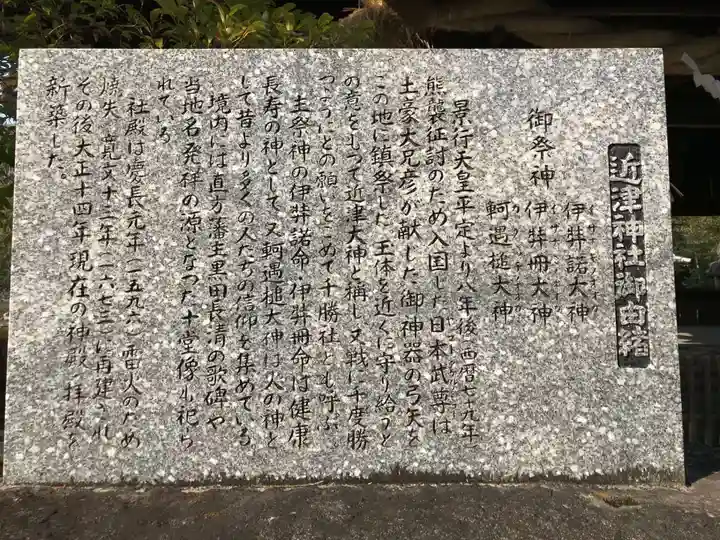 近津神社御由緒
御祭神
伊弉諾大神
伊弉冊大神
軻遇槌大神
景行天皇平定より八年後（西暦七九年）
熊襲征討のため入国した日本武尊は
土豪大兄彦が献した御神器の弓矢を
この地に鎮祭した 王体を近くに守り給うと
の意をもって近津大神と称し又戦に十度勝
つようにとの願いをこめて十勝社とも呼ぶ
主祭神の伊弉諾命 伊弉冊命は健康
長寿の神として 又軻遇槌大神は火の神と
して昔より多くの人たちの信仰を集めている
境内には直方藩主黒田長清の歌碑や
当地名発祥の源となった十堂像も祀ら
れている
社殿は慶長元年（一五九六）雷火のため
焼失 寛文十二年（一六七三）に再建され
その後大正十四年現在の神殿 拝殿を
新築した。